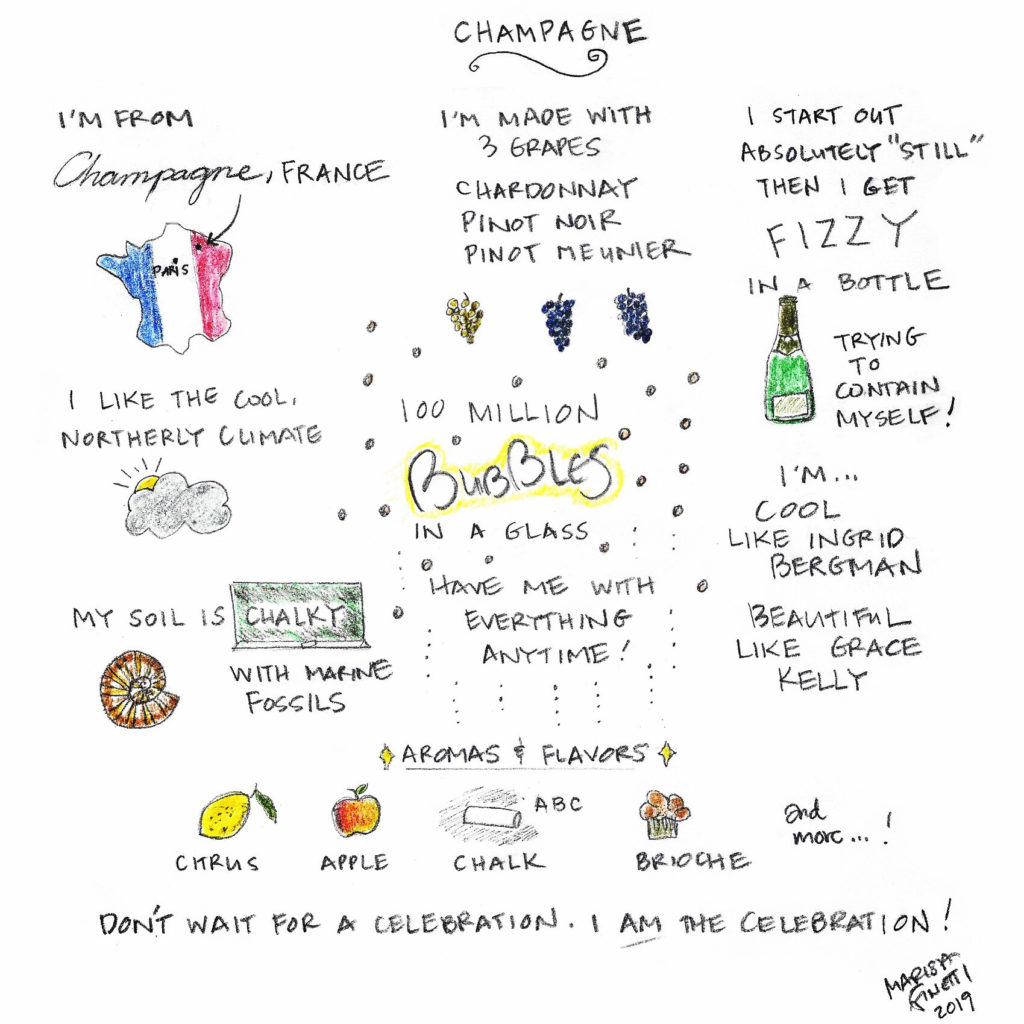 CHAMPAGNE
I'M FROM
Champagne, FRANCE
PARIS
I LIKE THE COOL,
NORTHERLY CLIMATE
MY SOIL IS CHALKY
WITH MARINE
FOSSILS
I'M MADE WITH
3 GRAPES
CHARDONNAY
PINOT NOIR
PINOT MEUNIER
100 MILLION
BUBBLES
IN A GLASS
HAVE ME WITH
EVERYTHING
ANYTIME!
I START OUT
ABSOLUTELY "STILL"
THEN I GET
FIZZY
IN A BOTTLE
TRYING
TO
CONTAIN
MYSELF!
I'M...
COOL
LIKE INGRID
BERGMAN
BEAUTIFUL
LIKE GRACE
KELLY
AROMAS & FLAVORS
CITRUS
APPLE
ABC
CHALK
BRIOCHE
and
more...!
DON'T WAIT FOR A CELEBRATION. I AM THE CELEBRATION!
MARISA
FINETTI
2019